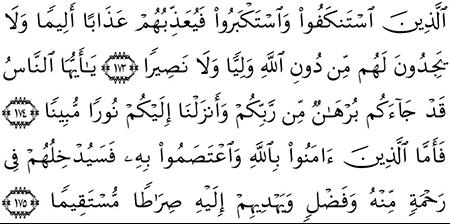 ٱلَّذِينَ ٱسْتَنكَفُوا۟ وَٱسْتَكْبَرُوا۟ فَيُعَذِّبُهُمْ عَذَابًا أَلِيمًا وَلَا
يَجِدُونَ لَهُم مِّن دُونِ ٱللَّهِ وَلِيًّا وَلَا نَصِيرًا ١٧٣ يَـٰٓأَيُّهَا ٱلنَّاسُ
قَدْ جَآءَكُم بُرْهَـٰنٌ مِّن رَّبِّكُمْ وَأَنزَلْنَآ إِلَيْكُمْ نُورًا مُّبِينًا ١٧٤
فَأَمَّا ٱلَّذِينَ ءَامَنُوا۟ بِٱللَّهِ وَٱعْتَصَمُوا۟ بِهِۦ فَسَيُدْخِلُهُمْ فِى
رَحْمَةٍ مِّنْهُ وَفَضْلٍ وَيَهْدِيهِمْ إِلَيْهِ صِرَٰطًا مُّسْتَقِيمًا ١٧٥